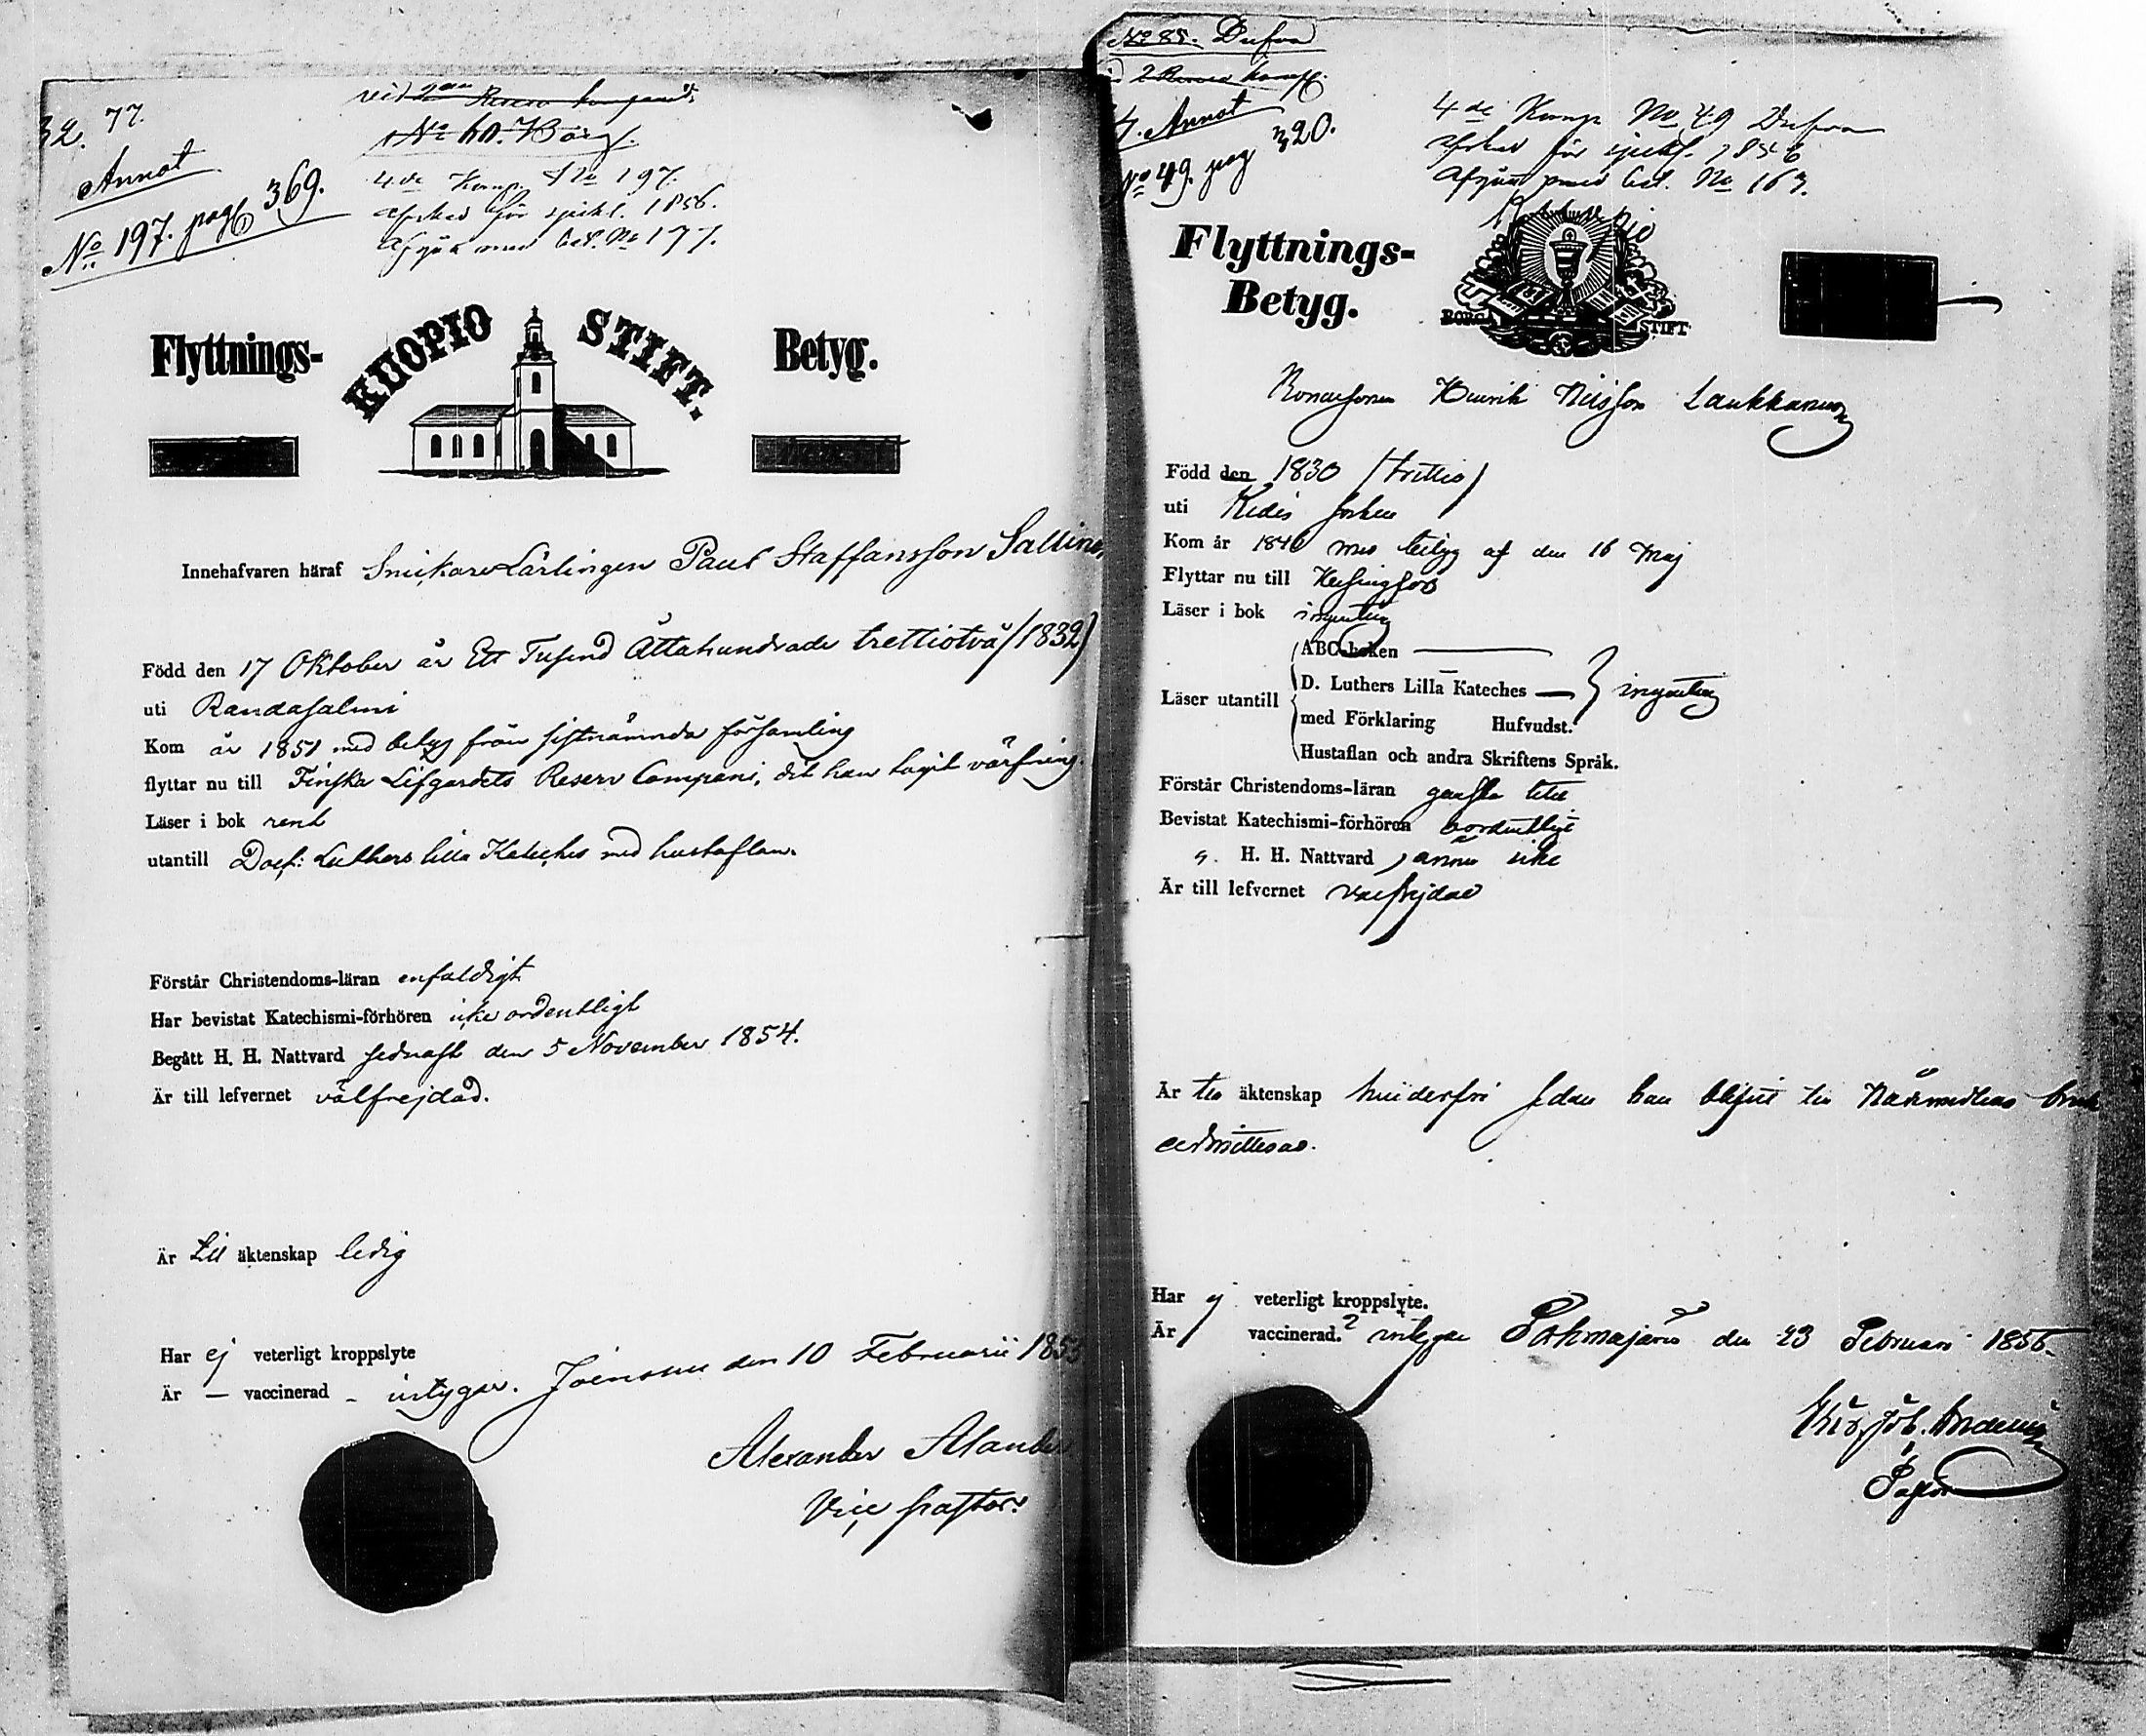 77.
Annot
No 197. pag 369.
vid 2dra Reserv
4de Komp. No 197.
för sjukl. 1856.
No 177.
KUOPIO STIFT.
Flyttnings- Betyg.
Innehafvaren häraf Snickare Lärlingen Paul Staffansson Sallinen
Född den 17 Oktober år Ett Tusend Åttahundrade trettiotvå (1832)
uti Randasalmi
Kom år 1851 med betyg från sistnämnda församling
flyttar nu till Finska Lifgardets Reserv Compani, dit han tagit värfning.
Läser i bok rent
utantill Doct: Luthers lilla Kateches med hustaflan.
Förstår Christendoms-läran enfaldigt
Har bevistat Katechismi-förhören icke ordentligt
Begått H. H. Nattvard sednast den 5 November 1854.
Är till lefvernet välfrejdad.
Är till äktenskap ledig
Har ej veterligt kroppslyte
Är — vaccinerad - intygar. Joensuu den 10 Februarii 185
Alexander Alander
Vice pastor.
No 85. Dufva
Annot
No 49. pag 320.
4de Komp No 49 Dufva
för sjukl. 1856
No 163.
Flyttnings-
Betyg.
BORGÅ STIFT
Henrik Nilsson Laukkanen
Född den 1830 (trettio)
uti Kides socken
Kom år med betyg af den 16 Maj
Flyttar nu till Helsingfors
Läser i bok ingenting
Läser utantill
ABC-boken —
D. Luthers Lilla Kateches — } ingenting
med Förklaring Hufvudst.
Hustaflan och andra Skriftens Språk.
Förstår Christendoms-läran ganska litet
Bevistat Katechismi-förhören oordentligt
„ H. H. Nattvard ännu icke
Är till lefvernet välfrejdad
Är till äktenskap hinderfri sedan han blifvit till Nattvardens bruk
admitterad.
Har ej veterligt kroppslyte.
Är vaccinerad? intygar den 23 Februari 1856.
Pastor